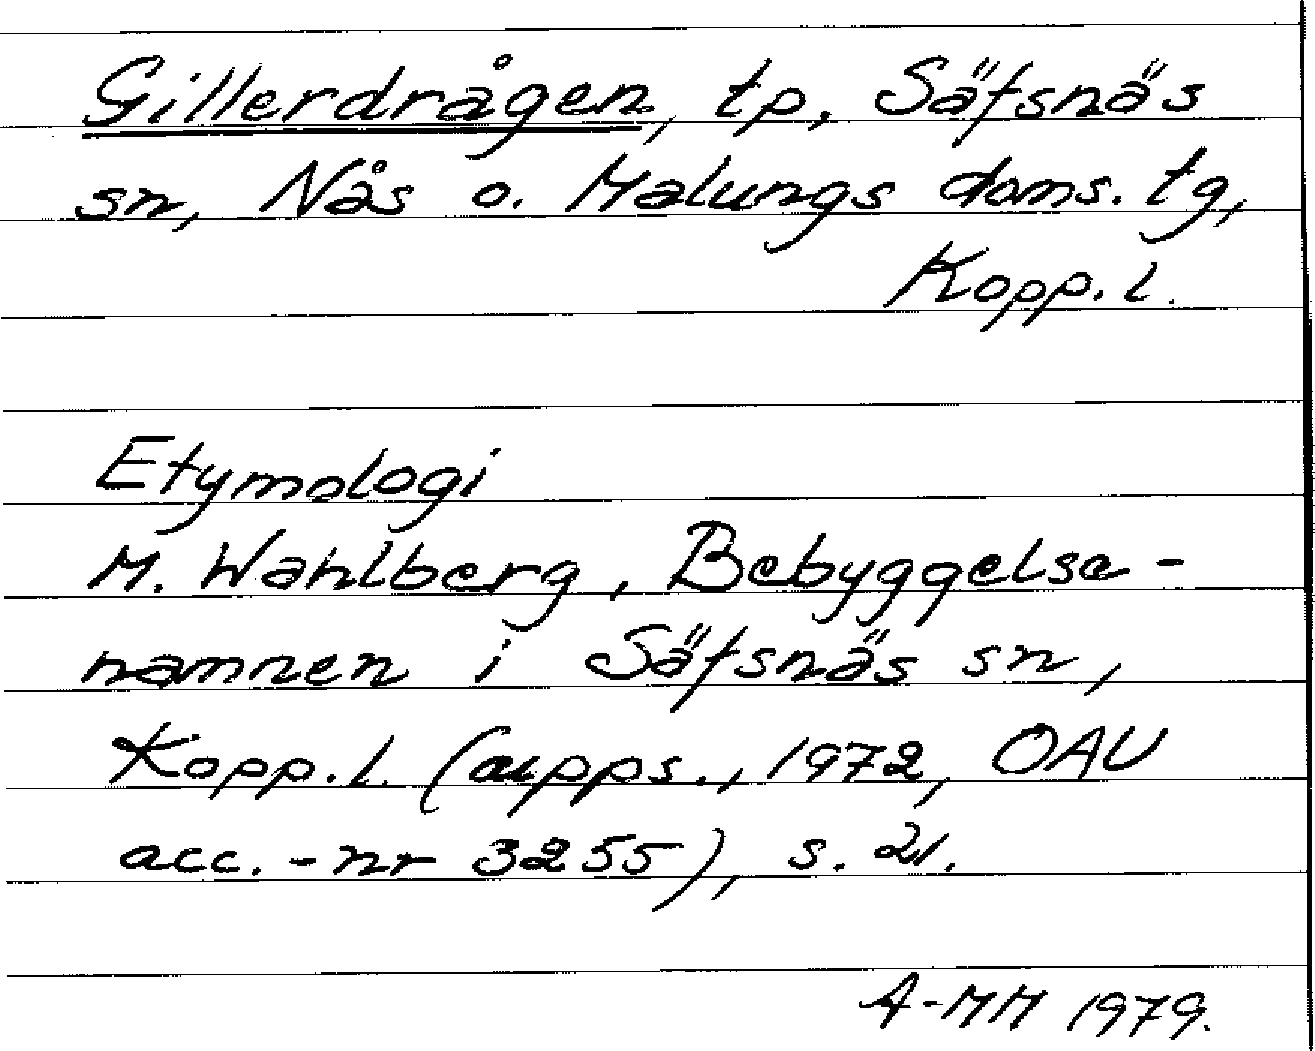 Gillerdrågen, tp, Säfsnäs
sn, Nås o. Malungs doms. tg,
Kopp. l.
Etymologi
M. Wahlberg, Bebyggelse-
namnen i Säfsnäs sn,
Kopp. l. (aupps., 1972, OAU
acc.-nr 3255), s. 21.
A-MM 1979.